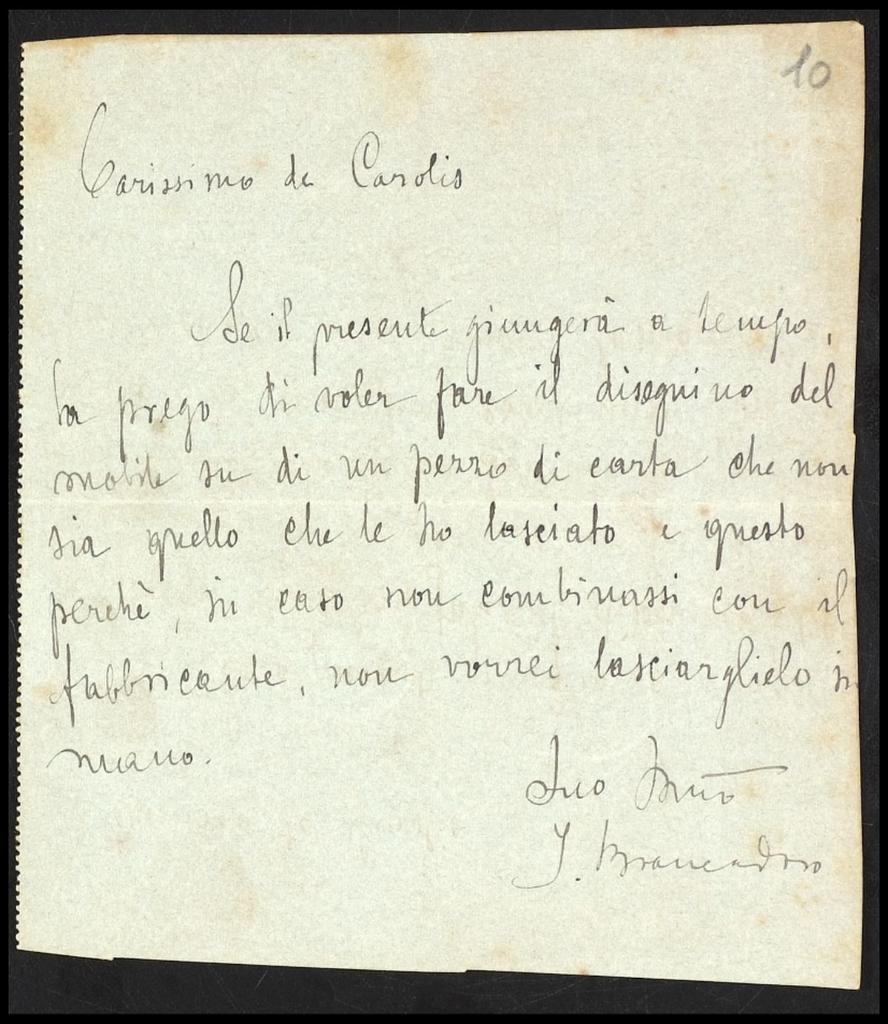 10
Carissimo de Carolis
Se il presente giungerà a tempo,
la prego di voler fare il disegnino del
mobile su di un pezzo di carta che non
sia quello che le ho lasciato e questo
perchè, in caso non combinassi con il
fabbricante, non vorrei lasciarglielo in
mano.
Suo
J. Brancadoro